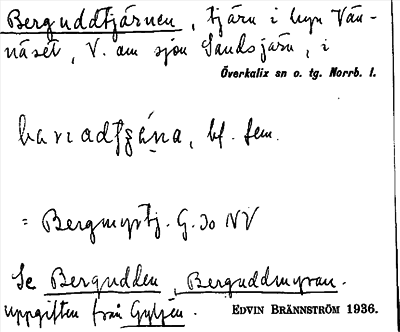 Berguddtjärnen, tjärn i byn Vän-
näset, V. om sjön Sandsjärv, i
Överkalix sn o. tg. Norrb. l.
bf. fem.
= Bergmyrtj. G. 30 NV
Se Bergudden, Berguddmyran.
uppgiften från Gyljen.
EDVIN BRÄNNSTRÖM 1936.